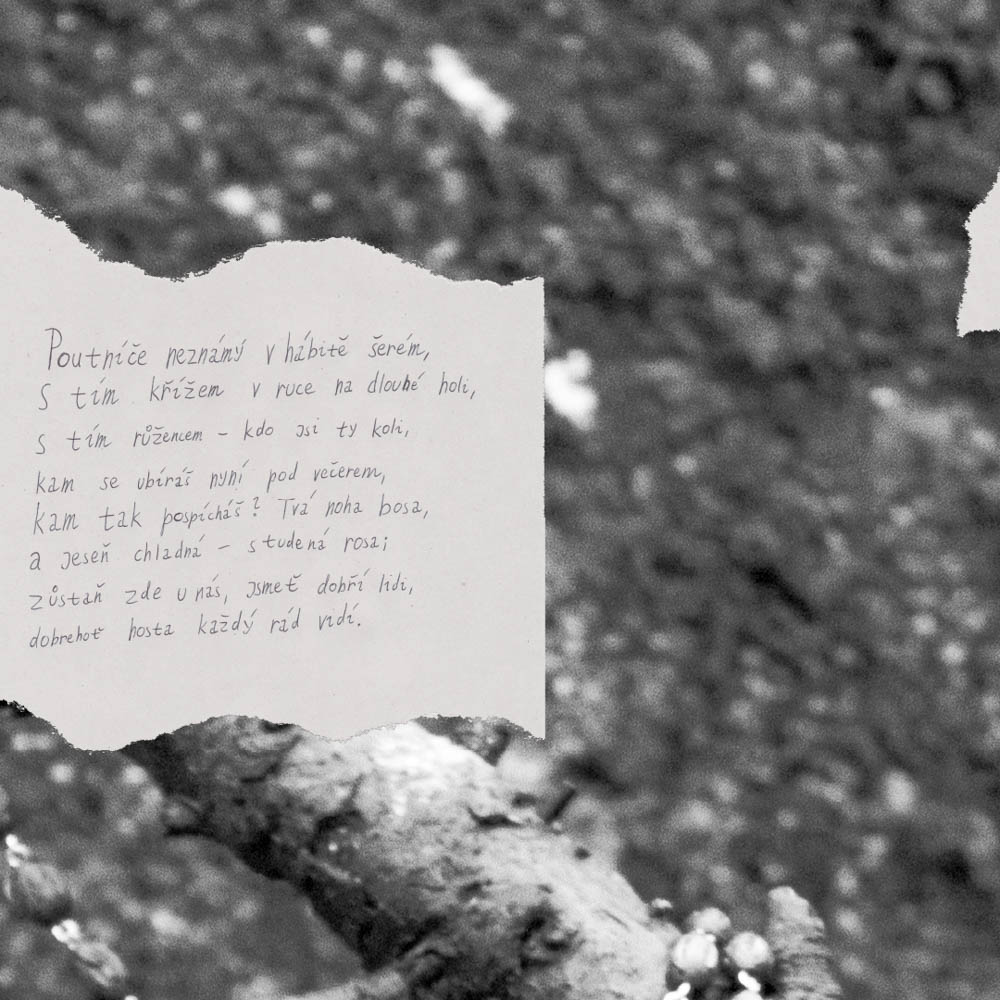 Poutníče neznámý v hábitě šerém,
S tím křížem v ruce na dlouhé holi,
s tím růžencem – kdo jsi ty koli,
kam se ubíráš nyní pod večerem,
kam tak pospícháš? Tvá noha bosa,
a jeseň chladná – studená rosa;
zůstaň zde u nás, jsmeť dobří lidi,
dobrehoť hosta každý rád vidí.